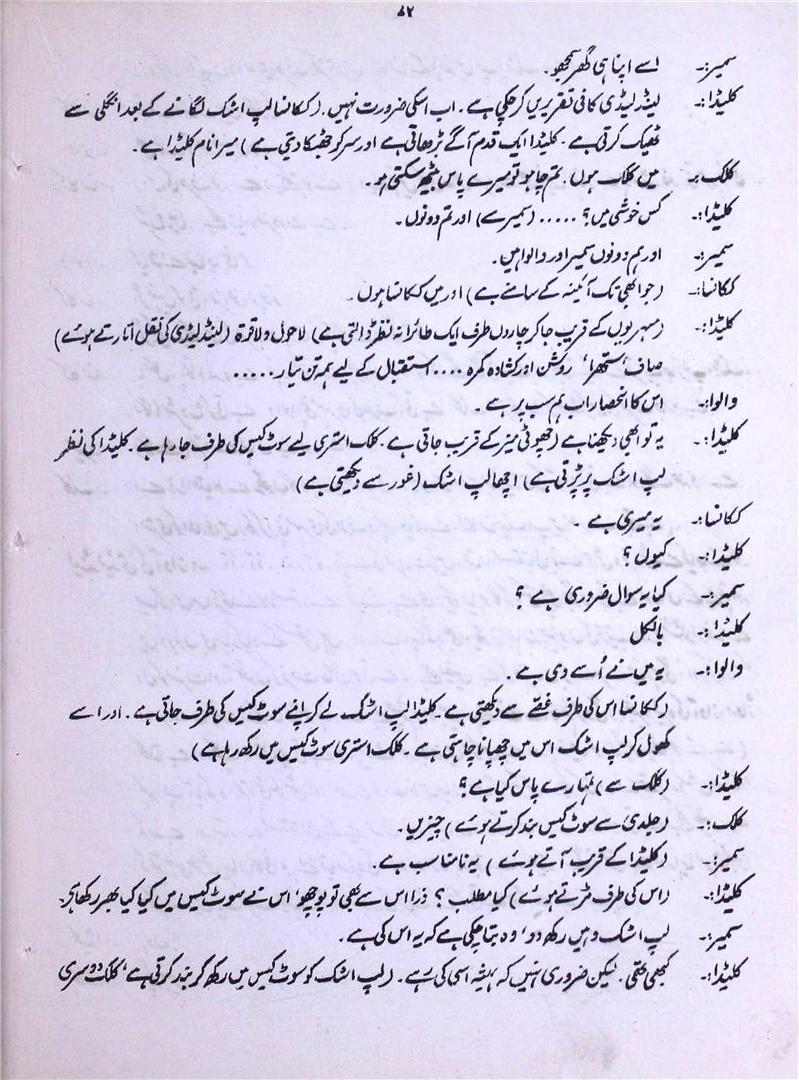 ۷۲
سمیر:۔ اسے اپنا ہی گھر سمجھو۔
کلیڈا:۔ لینڈ لیڈی کافی تقریریں کر چکی ہے۔ اب اسکی ضرورت نہیں۔ (ککانسا لپ اشک لگانے کے بعد انگلی سے
ٹھیک کرتی ہے۔ کلیڈا ایک قدم آگے بڑھاتی ہے اور سر کو جھٹکا دیتی ہے) میرا نام کلیڈا ہے۔
کلک:۔ میں کلک ہوں۔ تم چاہو تو میرے پاس بیٹھ سکتی ہو۔
کلیڈا:۔ کس خوشی میں؟ ..... (سمیر سے) اور تم دونوں۔
سمیر:۔ اور ہم دونوں سمیر اور والوا ہیں۔
ککانسا:۔ (جو ابھی تک آئینہ کے سامنے ہے) اور میں ککانسا ہوں۔
کلیڈا:۔ (مسہریوں کے قریب جا کر چاروں طرف ایک طائرانہ نظر ڈالتی ہے) لاحول ولا قوۃ (لینڈ لیڈی کی نقل اتارتے ہوئے)
صاف ستھرا، روشن اور کشادہ کمرہ .... استقبال کے لیے ہمہ تن تیار .....
والوا:۔ اس کا انحصار اب ہم سب پر ہے۔
کلیڈا:۔ یہ تو ابھی دیکھنا ہے (چھوٹی میز کے قریب جاتی ہے۔ کلک استری لیے سوٹ کیس کی طرف جا رہا ہے۔ کلیڈا کی نظر
لپ اشک پر پڑتی ہے) اچھا لپ اشک (غور سے دیکھتی ہے)
ککانسا:۔ یہ میری ہے۔
کلیڈا:۔ کیوں؟
سمیر:۔ کیا یہ سوال ضروری ہے؟
کلیڈا:۔ بالکل
والوا:۔ یہ میں نے اُسے دی ہے۔
(ککانسا اس کی طرف غصّے سے دیکھتی ہے۔ کلیڈا لپ اشک لے کر اپنے سوٹ کیس کی طرف جاتی ہے۔ اور اسے
کھول کر لپ اشک اس میں چھپانا چاہتی ہے۔ کلک استری سوٹ کیس میں رکھ رہا ہے)
کلیڈا:۔ (کلک سے) تمہارے پاس کیا ہے؟
کلک:۔ (جلدی سے سوٹ کیس بند کرتے ہوئے) چیزیں۔
سمیر:۔ (کلیڈا کے قریب آتے ہوئے) یہ نامناسب ہے۔
کلیڈا:۔ (اس کی طرف مڑتے ہوئے) کیا مطلب؟ ذرا اس سے بھی تو پوچھو، اس نے سوٹ کیس میں کیا کیا بھر رکھا ہے۔
سمیر:۔ لپ اشک وہیں رکھ دو، وہ بتا چکی ہے کہ یہ اس کی ہے۔
کلیڈا:۔ کبھی تھی۔ لیکن ضروری نہیں کہ ہمیشہ اسی کی رہے۔ (لپ اشک کو سوٹ کیس میں رکھ کر بند کرتی ہے، کلک دوسری